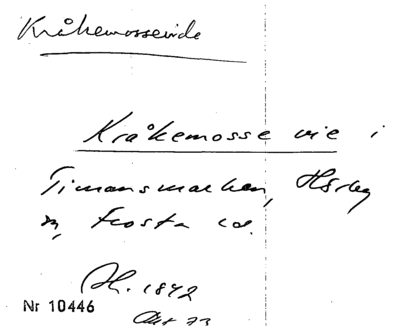 Kråkemossevide
Kråkemosse vie i
Timansmarken, Hörby
sn, Frosta hd.
Ah. 1842
Akt 73
Nr 10446